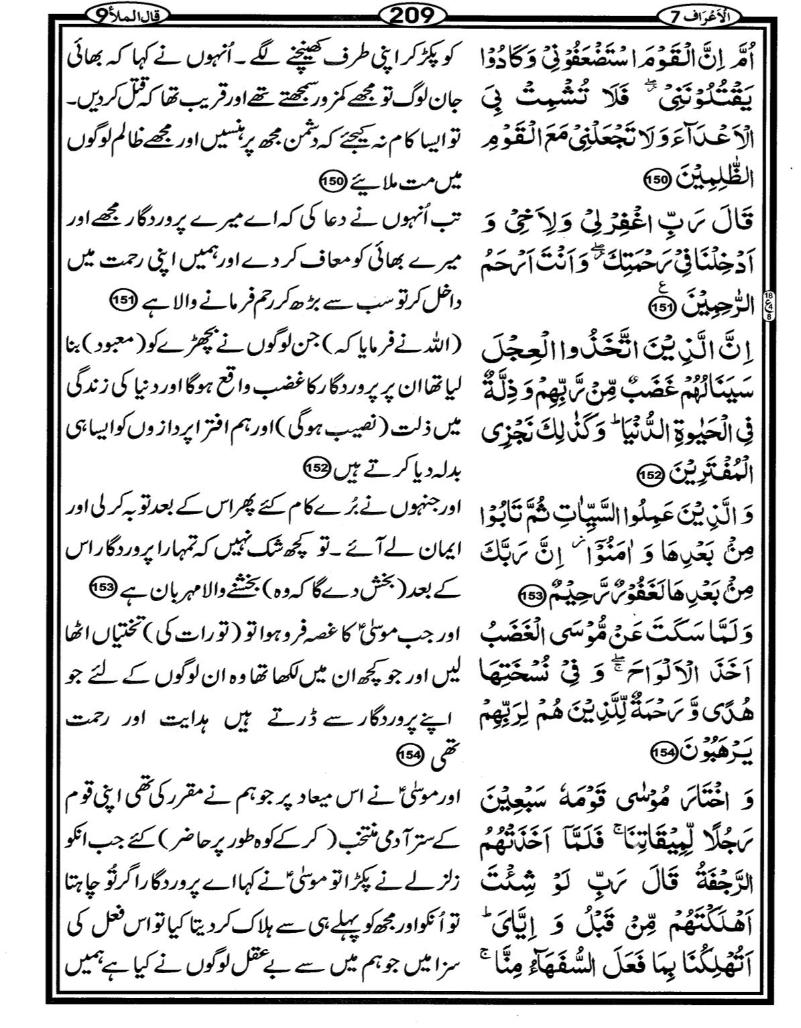 الاعراف 7
209
قال الملأ 9
اُمَّ اِنَّ الْقَوْمَ اسْتَضْعَفُوْنِيْ وَكَادُوْا
يَقْتُلُوْنَنِيْ ۖ فَلَا تُشْمِتْ بِيَ
الْاَعْدَآءَ وَلَا تَجْعَلْنِيْ مَعَ الْقَوْمِ
الظّٰلِمِيْنَ 150
قَالَ رَبِّ اغْفِرْ لِيْ وَلِاَخِيْ وَ
اَدْخِلْنَا فِيْ رَحْمَتِكَ ۖ وَاَنْتَ اَرْحَمُ
الرّٰحِمِيْنَ 151
اِنَّ الَّذِيْنَ اتَّخَذُوا الْعِجْلَ
سَيَنَالُهُمْ غَضَبٌ مِّنْ رَّبِّهِمْ وَ ذِلَّةٌ
فِي الْحَيٰوةِ الدُّنْيَا ؕ وَكَذٰلِكَ نَجْزِي
الْمُفْتَرِيْنَ 152
وَ الَّذِيْنَ عَمِلُوا السَّيِّاٰتِ ثُمَّ تَابُوْا
مِنْۢ بَعْدِهَا وَ اٰمَنُوْۤا ؗ اِنَّ رَبَّكَ
مِنْۢ بَعْدِهَا لَغَفُوْرٌ رَّحِيْمٌ 153
وَ لَمَّا سَكَتَ عَنْ مُّوْسَى الْغَضَبُ
اَخَذَ الْاَلْوَاحَ ۖ وَ فِيْ نُسْخَتِهَا
هُدًى وَّ رَحْمَةٌ لِّلَّذِيْنَ هُمْ لِرَبِّهِمْ
يَرْهَبُوْنَ 154
وَ اخْتَارَ مُوْسٰى قَوْمَهٗ سَبْعِيْنَ
رَجُلًا لِّمِيْقَاتِنَا ۚ فَلَمَّاۤ اَخَذَتْهُمُ
الرَّجْفَةُ قَالَ رَبِّ لَوْ شِئْتَ
اَهْلَكْتَهُمْ مِّنْ قَبْلُ وَ اِيَّايَ ؕ
اَتُهْلِكُنَا بِمَا فَعَلَ السُّفَهَآءُ مِنَّا ۚ
کو پکڑ کر اپنی طرف کھینچنے لگے ۔ اُنہوں نے کہا کہ بھائی
جان لوگ تو مجھے کمزور سمجھتے تھے اور قریب تھا کہ قتل کر دیں۔
تو ایسا کام نہ کیجئے کہ دشمن مجھ پر ہنسیں اور مجھے ظالم لوگوں
میں مت ملایئے 150
تب اُنہوں نے دعا کی کہ اے میرے پروردگار مجھے اور
میرے بھائی کو معاف کر دے اور ہمیں اپنی رحمت میں
داخل کر تو سب سے بڑھ کر رحم فرمانے والا ہے 151
(اللہ نے فرمایا کہ) جن لوگوں نے بچھڑے کو (معبود) بنا
لیا تھا ان پر پروردگار کا غضب واقع ہوگا اور دنیا کی زندگی
میں ذلت (نصیب ہوگی) اور ہم افترا پردازوں کو ایسا ہی
بدلہ دیا کرتے ہیں 152
اور جنہوں نے بُرے کام کئے پھر اس کے بعد توبہ کر لی اور
ایمان لے آئے ۔ تو کچھ شک نہیں کہ تمہارا پروردگار اس
کے بعد (بخش دے گا کہ وہ) بخشنے والا مہربان ہے 153
اور جب موسیٰؑ کا غصہ فرو ہوا تو (تورات کی) تختیاں اٹھا
لیں اور جو کچھ ان میں لکھا تھا وہ ان لوگوں کے لئے جو
اپنے پروردگار سے ڈرتے ہیں ہدایت اور رحمت
تھی 154
اور موسیٰؑ نے اس میعاد پر جو ہم نے مقرر کی تھی اپنی قوم
کے ستر آدمی منتخب (کرکے کوہ طور پر حاضر) کئے جب انکو
زلزلے نے پکڑا تو موسیٰؑ نے کہا اے پروردگار اگر تُو چاہتا
تو اُنکو اور مجھ کو پہلے ہی سے ہلاک کر دیتا کیا تو اس فعل کی
سزا میں جو ہم میں سے بے عقل لوگوں نے کیا ہے ہمیں